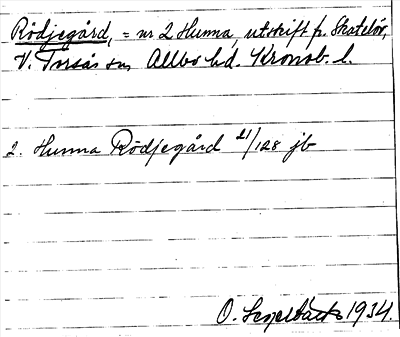 Rödjegård, = nr 2 Hunna, utskift fr. Skatelöv,
V. Torsås sn Allbo hd. Kronob. l.
2. Hunna Rödjegård 21/128 jb
O. 1934.